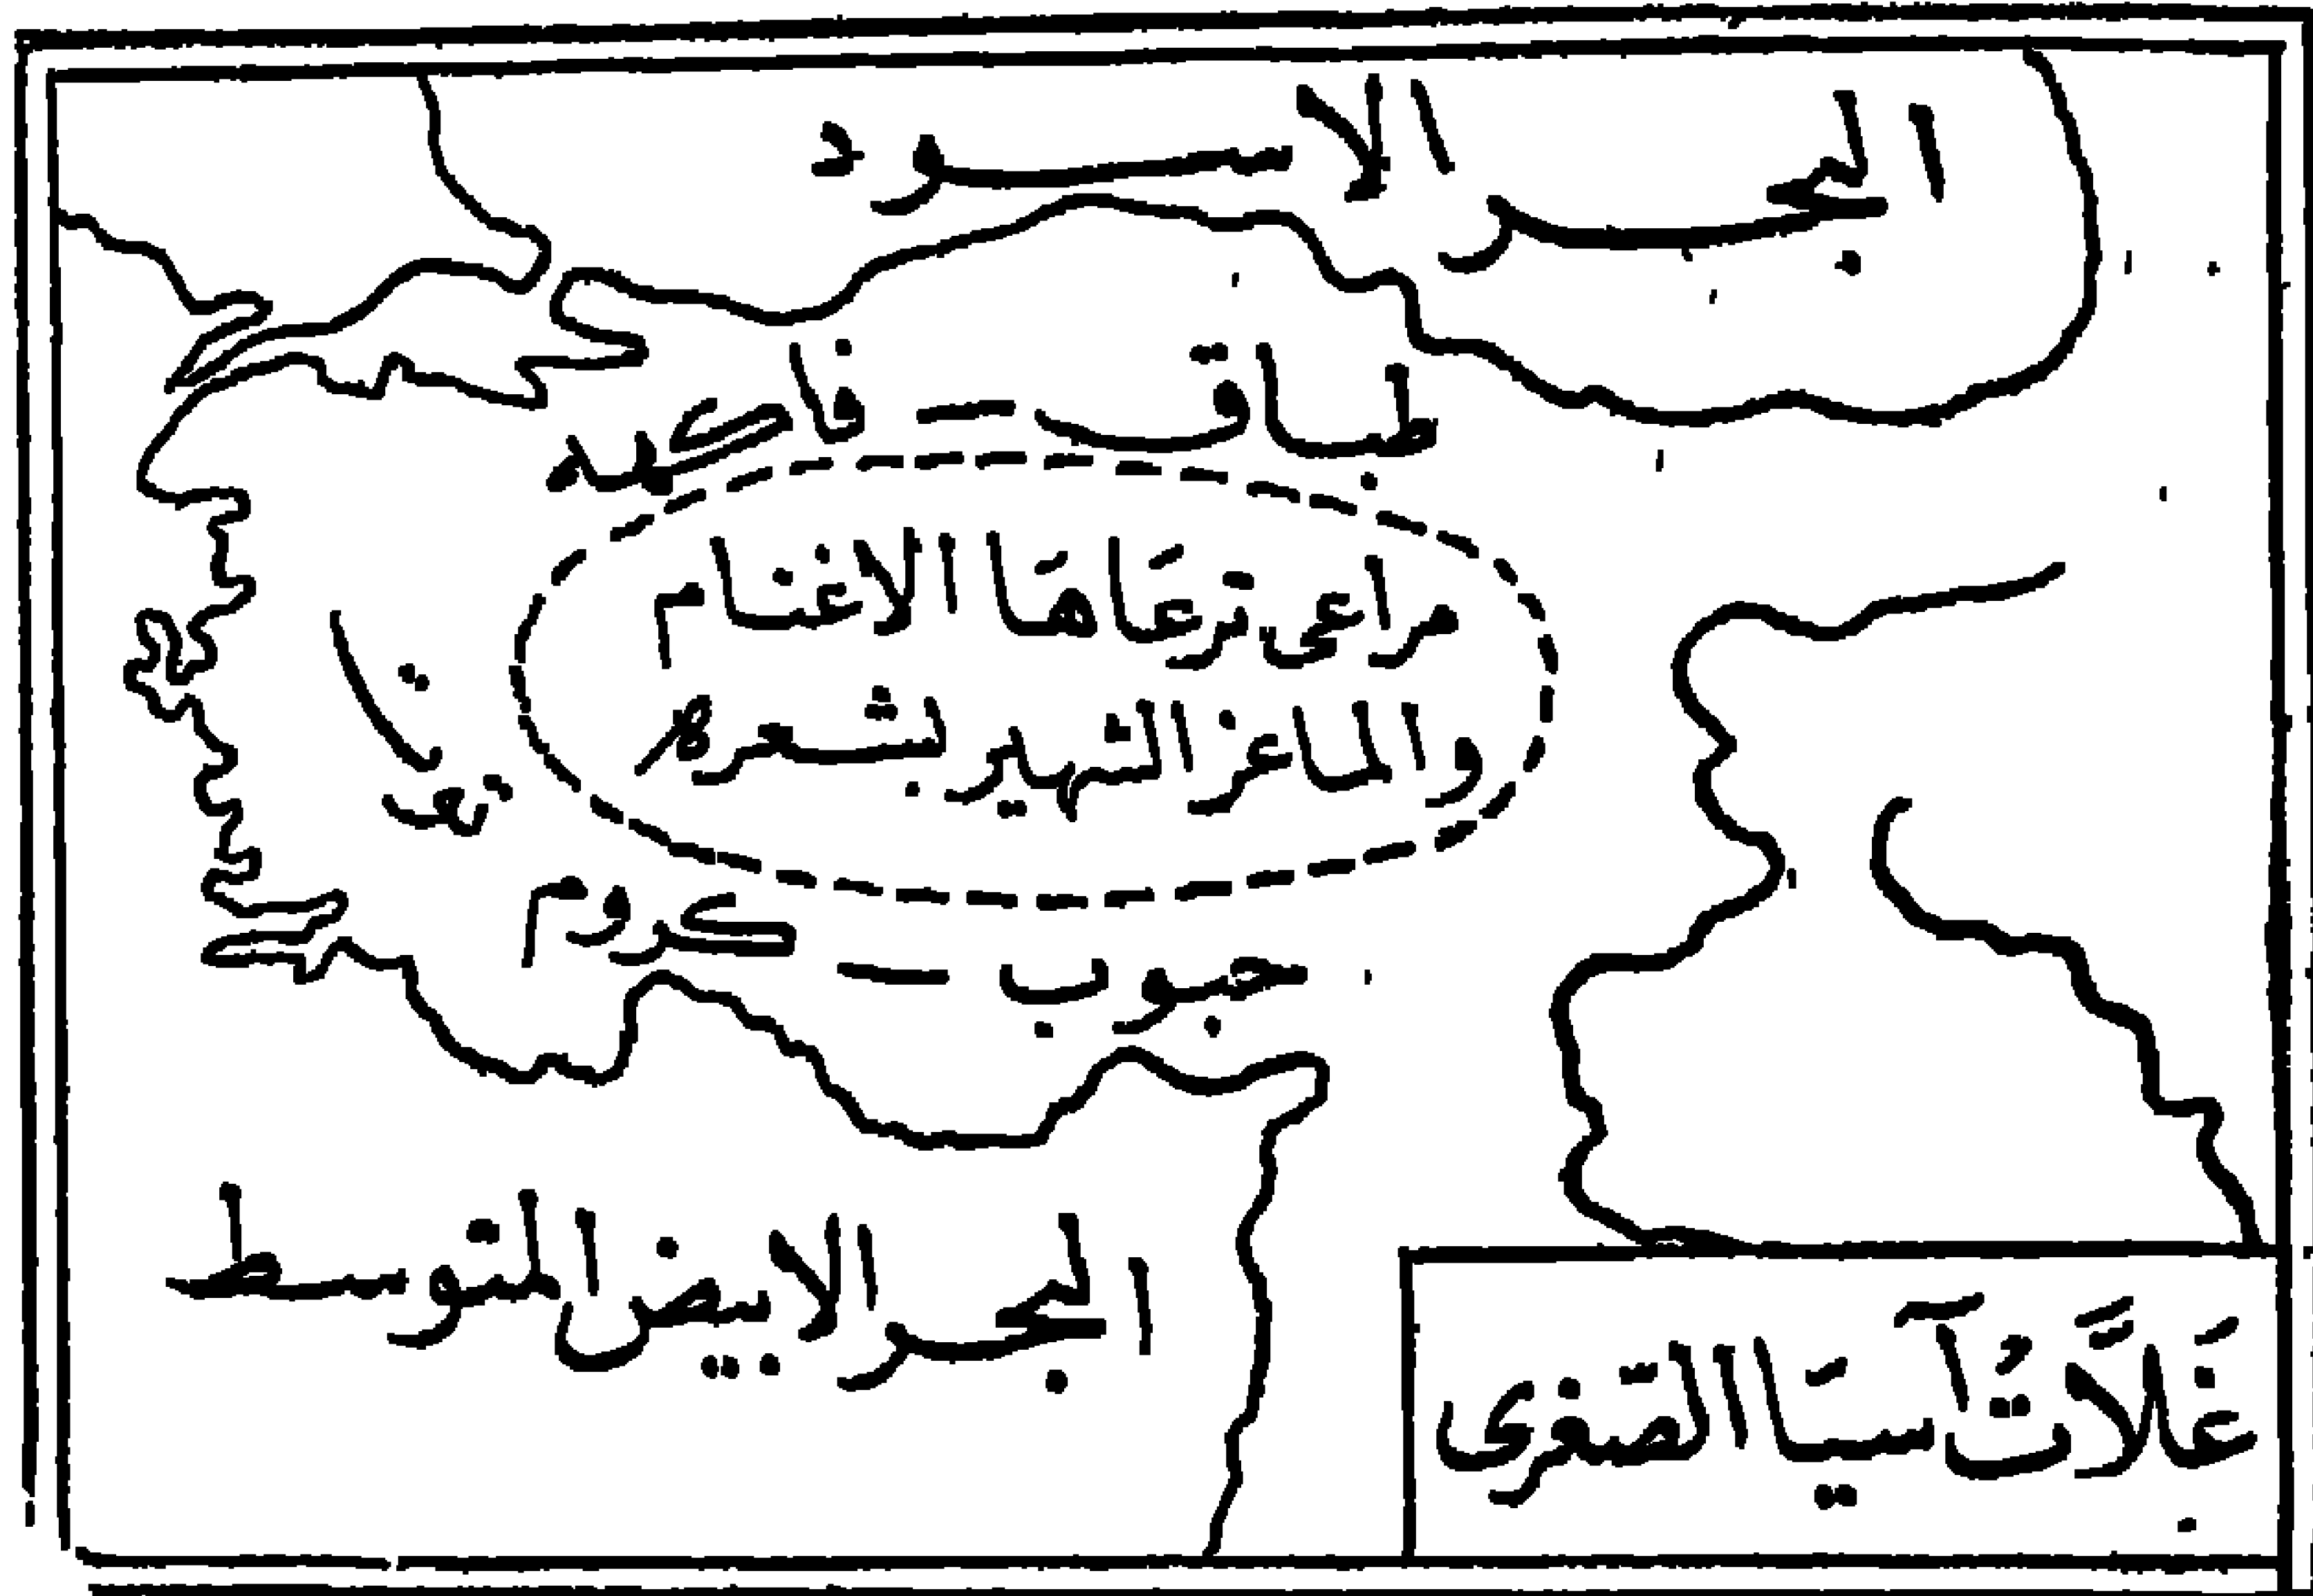 البحر الاسود
طباق — فاكهه
مراعى ترعَاهَا الاغنَام
والماعز الشهير بشعره
حبوب — كروم
البحر الابيض المتوسط
غَلَّاتُ آسيَا الصَغرى